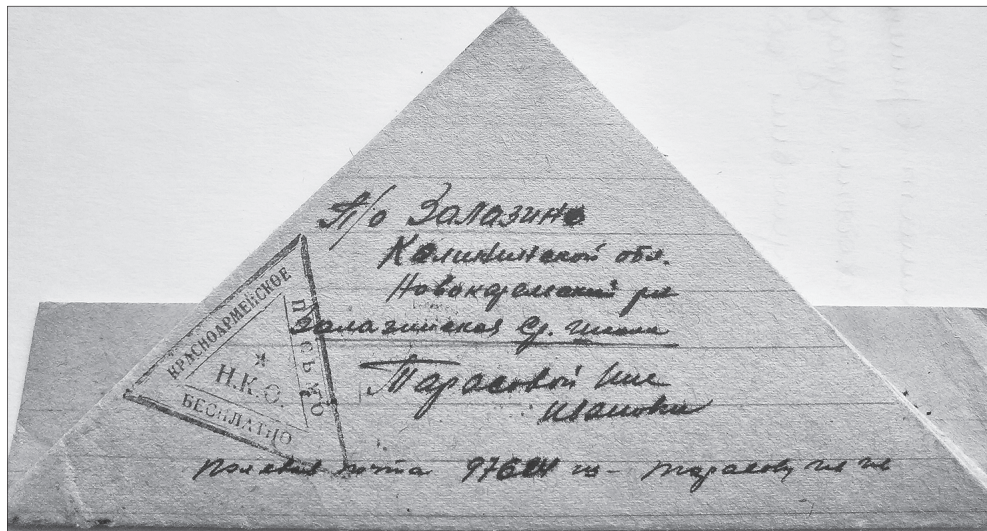 П/о Залазино
Калининской обл.
Новокарельский р-н
Залазинская ср. школа
Тарасовой
Ивановне
КРАСНОАРМЕЙСКОЕ
ПИСЬМО
Н.К.О.
БЕСПЛАТНО
Полевая почта